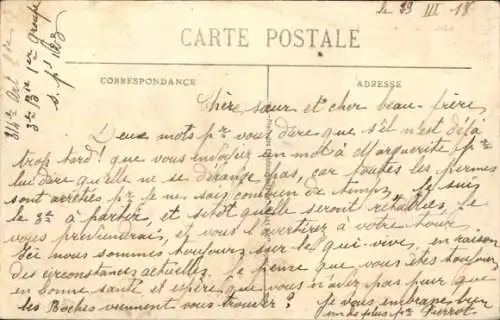 le 23 III 18
314e Art Lde
3e Bie 1er groupe
S. P. 183
CARTE POSTALE
CORRESPONDANCE
ADRESSE
Chère sœur et cher beau-frère
Deux mots pr vous dire que s'il n'est déjà
trop tard! que vous envoyiez un mot à Marguerite pr
lui dire qu'elle ne se dérange pas, car toutes les permes
sont arrêtées pr je ne sais combien de temps. Je suis
le 3e à partir, et sitôt qu'elle seront rétablies, je
vous préviendrai, et vous l'avertirez à votre tour
Ici nous sommes toujours sur le qui-vive, en raison
des circonstances actuelles. Je pense que vous êtes toujours
en bonne santé et espère que vous n'avez pas peur que
les Boches viennent vous trouver? Je vous embrasse bien
des plus fr Pierrot.